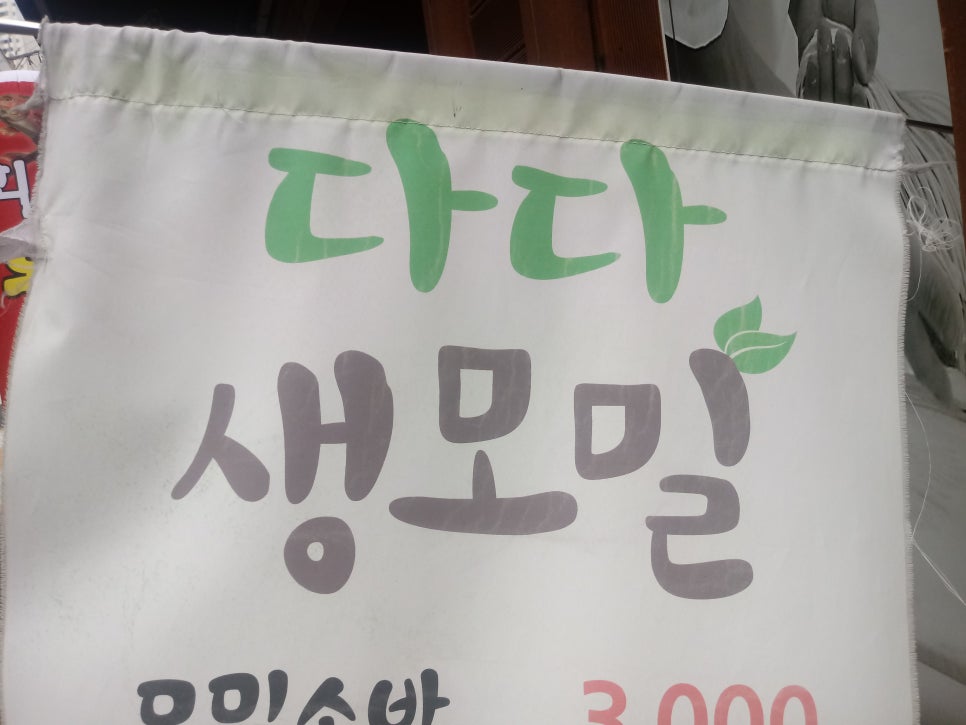 다다
생모밀
모밀소바 3,000